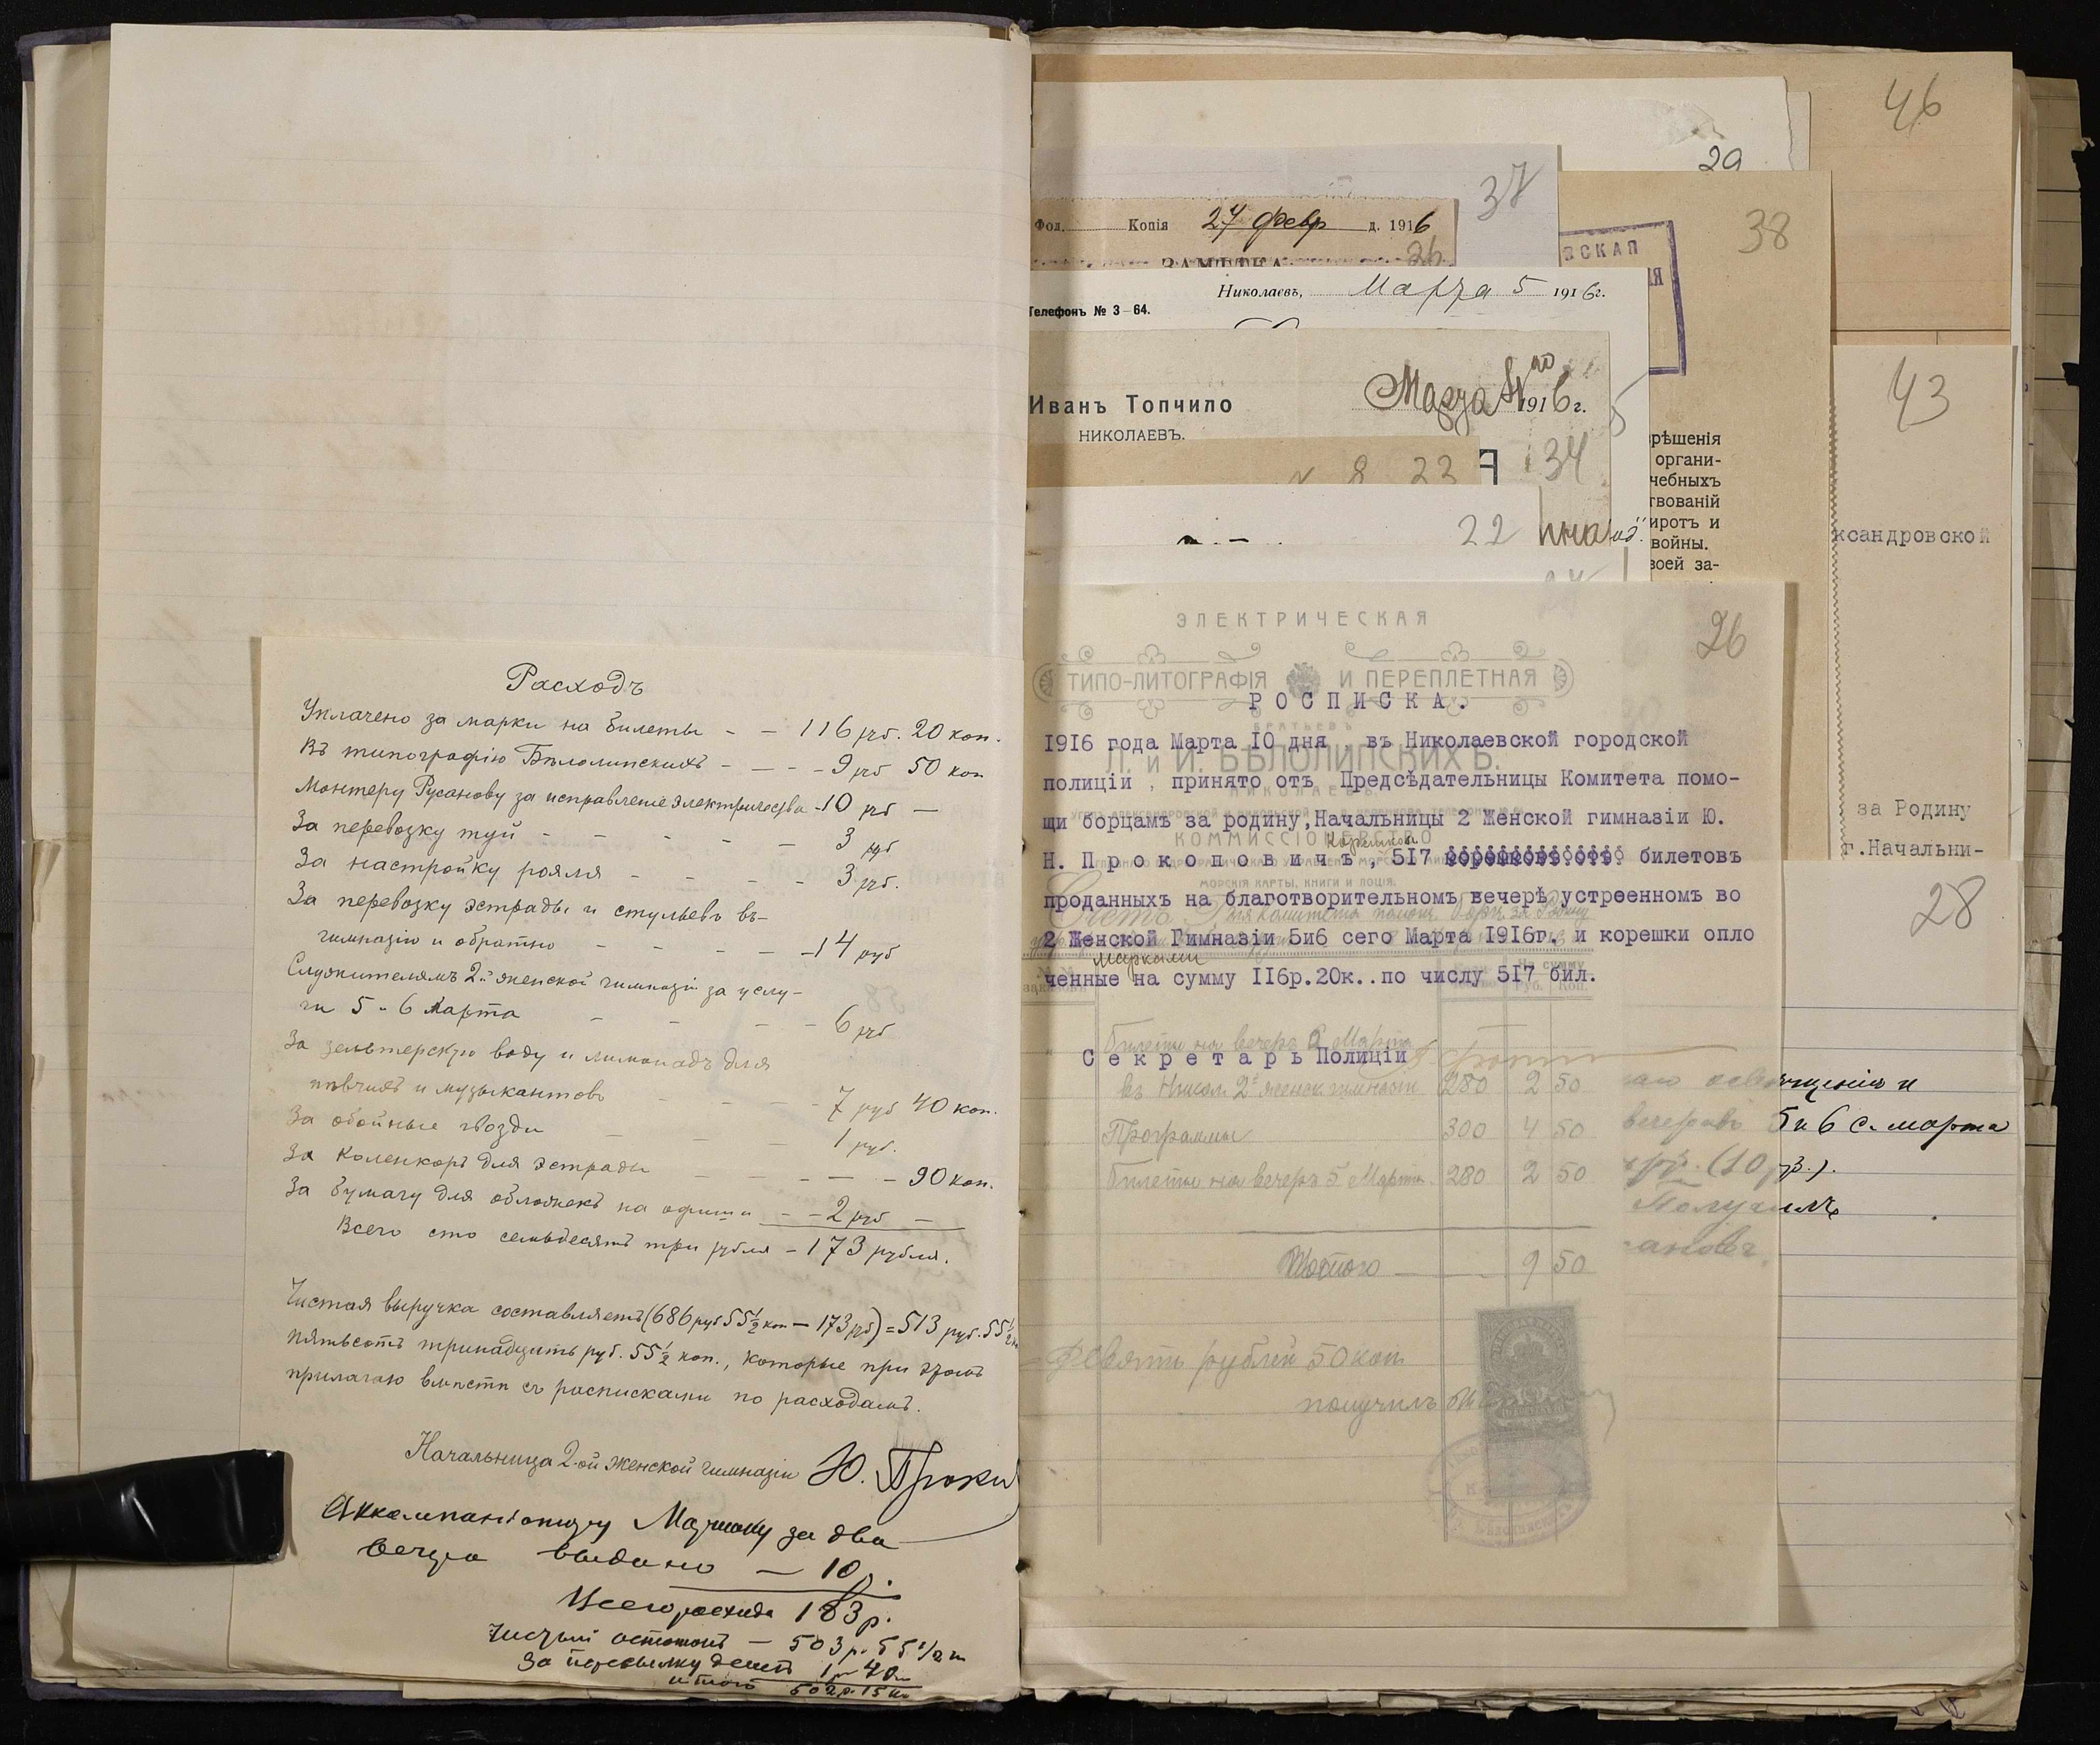 Расходъ
Уплачено за марки на билеты - - 116 руб. 20 коп.
Въ типографію Бѣлолипскихъ - - - 9 руб 50 коп
Монтеру Русанову за исправленіе электричества - 10 руб —
За перевозку туй - - - - - 3 руб
За настройку рояля - - - - 3 руб.
За перевозку эстрады и стульевъ въ-
гимназію и обратно - - - - 14 руб
Служителямъ 2-й женской гимназіи за услу-
ги 5 и 6 Марта - - - - 6 руб
За зельтерскую воду и лимонадъ для
пѣвчихъ и музыкантовъ - - - - 7 руб 40 коп.
За обойные гвозди - - - 1 руб.
За коленкоръ для эстрады - - - - 90 коп.
За бумагу для обложекъ на афиши - - 2 руб —
Всего сто семьдесятъ три рубля - 173 рубля.
Чистая выручка составляетъ (686 руб 55½ коп — 173 руб) = 513 руб. 55½
пятьсотъ тринадцать руб. 55½ коп., которые при этомъ
прилагаю вмѣстѣ съ расписками по расходамъ.
Начальница 2-ой женской гимназіи Ю. Проко
Аккомпаніатору за два
вечера выдано — 10 р.
Всего расхода 183 р.
Чистый остатокъ — 503 р. 55 1/2 к
За пересылку денегъ 1 р 40 к
итого 502 р. 15 к
46
29
37
38
Фол. Копія 27 февр д. 1916
26
ЗАМѢТКА
ВСКАЯ
ІЯ
Николаевъ, Марта 5 1916г.
Телефонъ № 3-64.
Иванъ Топчило
Марта 1916 г.
НИКОЛАЕВЪ.
43
34
22
рѣшенія
органи-
чебныхъ
твованій
иротъ и
войны.
воей за-
ксандровской
за Родину
г.Начальни-
28
26
ЭЛЕКТРИЧЕСКАЯ
ТИПО-ЛИТОГРАФІЯ И ПЕРЕПЛЕТНАЯ
БРАТЬЕВЪ
Л. и И. БѢЛОЛИПСКИХЪ.
КОММИССІОНЕРСТВО
МОРСКІЯ КАРТЫ, КНИГИ И ЛОЦІЯ.
РОСПИСКА.
1916 года Марта 10 дня , въ Николаевской городской
полиціи , принято отъ Предсѣдательницы Комитета помо-
щи борцамъ за родину,Начальницы 2 Женской гимназіи Ю.
корешковъ
Н. Прокоповичъ, 517 корешковъ отъ билетовъ
проданныхъ на благотворительномъ вечерѣ устроенномъ во
2 Женской Гимназіи 5и6 сего Марта 1916г. и корешки опло
марками
ченные на сумму 116р.20к..по числу 517 бил.
Секретарь Полиціи
Билеты на вечеръ 6 Марта
въ Никол. 2й женск. гимназіи 280 2 50
Программы 300 4 50
Билеты на вечеръ 5 Марта. 280 2 50
Итого 9 50
Девять рублей 50 коп
получилъ
вечеровъ 5 и 6 с. марта
(10 р.).
Получилъ